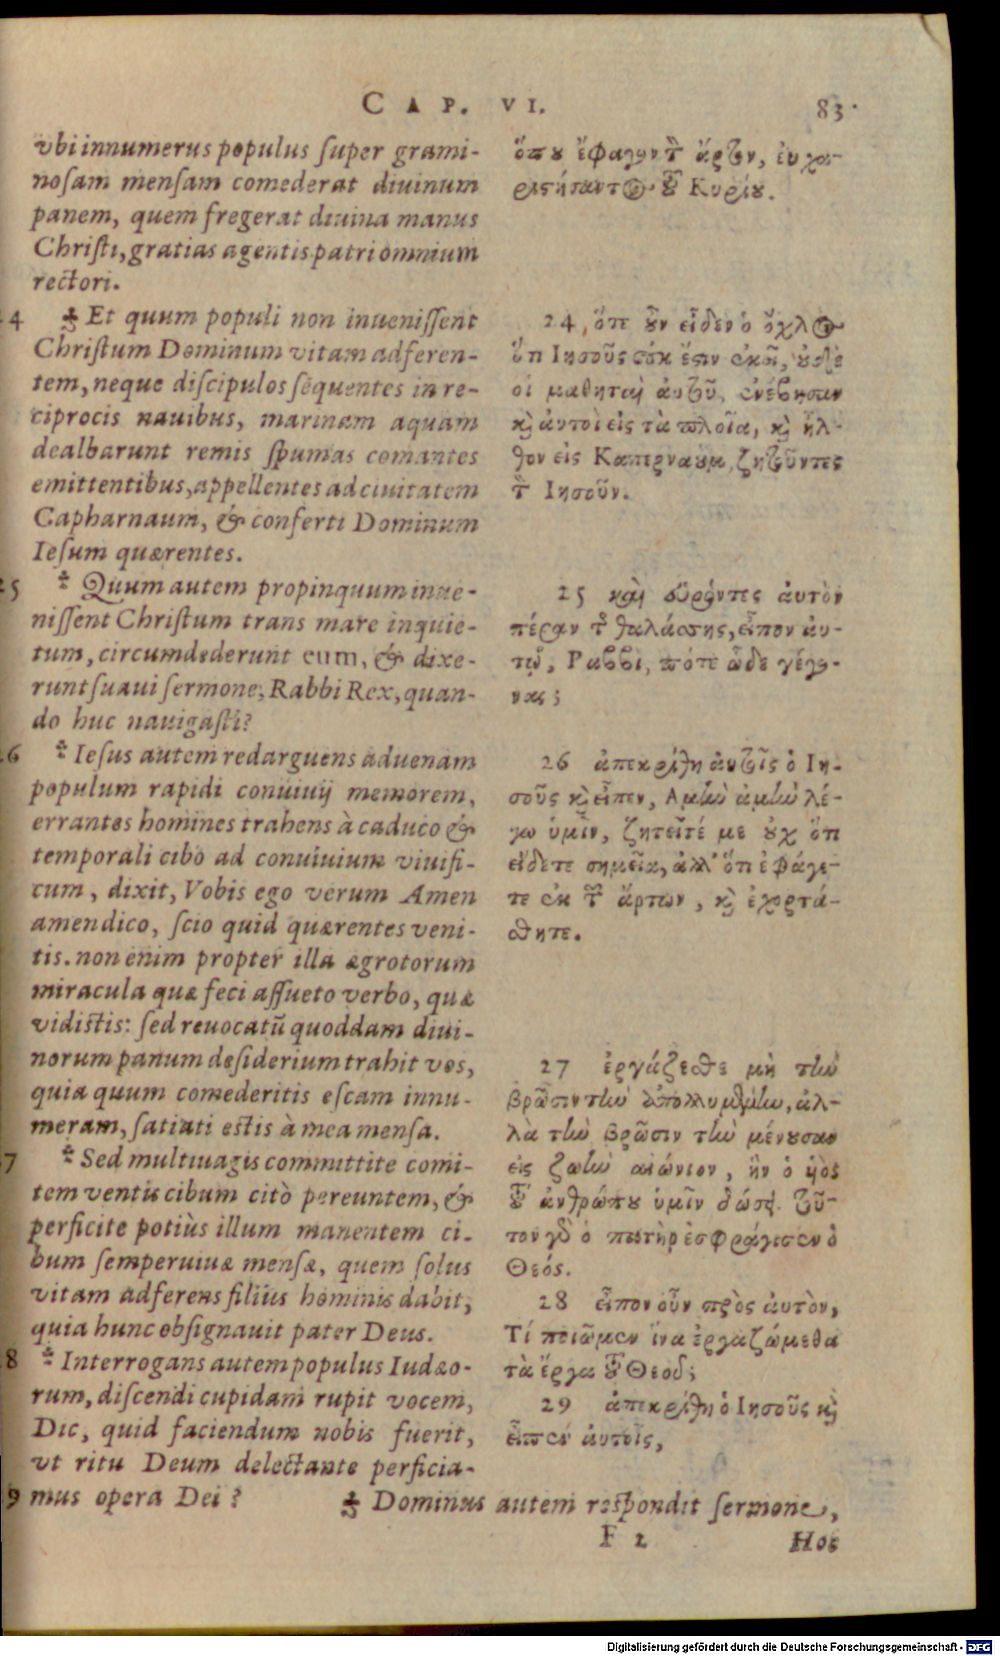 CAP. VI. 83.
vbi innumerus populus ſuper grami-
noſam menſam comederat diuinum
panem, quem fregerat diuina manus
Chriſti, gratias agentis patri omnium
rectori.
24 Et quum populi non inueniſſent
Chriſtum Dominum vitam adferen-
tem, neque diſcipulos ſequentes in re-
ciprocis nauibus, marinam aquam
dealbarunt remis ſpumas comantes
emittentibus, appellentes ad ciuitatem
Capharnaum, & conferti Dominum
Ieſum quærentes.
25 Quum autem propinquum inue-
niſſent Chriſtum trans mare inquie-
tum, circumdederunt eum, & dixe-
runt ſuaui ſermone, Rabbi Rex, quan-
do huc nauigaſti?
26 Ieſus autem redarguens aduenam
populum rapidi conuiuij memorem,
errantes homines trahens à caduco &
temporali cibo ad conuiuium viuifi-
cum, dixit, Vobis ego verum Amen
amen dico, ſcio quid quærentes veni-
tis. non enim propter illa ægrotorum
miracula quæ feci aſſueto verbo, quæ
vidiſtis: ſed reuocatū quoddam diui-
norum panum deſiderium trahit vos,
quia quum comederitis eſcam innu-
meram, ſatiati eſtis à mea menſa.
27 Sed multiuagis committite comi-
tem ventis cibum citò pereuntem, &
perficite potiùs illum manentem ci-
bum ſemperuiuæ menſæ, quem ſolus
vitam adferens filius hominis dabit,
quia hunc obſignauit pater Deus.
28 Interrogans autem populus Iudæo-
rum, diſcendi cupidam rupit vocem,
Dic, quid faciendum nobis fuerit,
vt ritu Deum delectante perficia-
mus opera Dei?
ὅπου ἔφαγον τὸν ἄρτον, εὐχα-
ριστήσαντος τοῦ Κυρίου.
24 ὅτε οὖν εἶδεν ὁ ὄχλος
ὅτι Ἰησοῦς οὐκ ἔστιν ἐκεῖ, οὐδὲ
οἱ μαθηταὶ αὐτοῦ, ἐνέβησαν
καὶ αὐτοὶ εἰς τὰ πλοῖα, καὶ ἦλ-
θον εἰς Καπερναουμ, ζητοῦντες
τὸν Ἰησοῦν.
25 καὶ εὑρόντες αὐτὸν
πέραν τῆς θαλάσσης, εἶπον αὐ-
τῷ, Ραββι, πότε ὧδε γέγο-
νας;
26 ἀπεκρίθη αὐτοῖς ὁ Ἰη-
σοῦς καὶ εἶπεν, Αμὴν ἀμὴν λέ-
γω ὑμῖν, ζητεῖτέ με οὐχ ὅτι
εἴδετε σημεῖα, ἀλλ' ὅτι ἐφάγε-
τε ἐκ τῶν ἄρτων, καὶ ἐχορτά-
σθητε.
27 ἐργάζεσθε μὴ τὴν
βρῶσιν τὴν ἀπολλυμένην, ἀλ-
λὰ τὴν βρῶσιν τὴν μένουσαν
εἰς ζωὴν αἰώνιον, ἣν ὁ υἱὸς
τοῦ ἀνθρώπου ὑμῖν δώσει. τοῦ-
τον γὰρ ὁ πατὴρ ἐσφράγισεν ὁ
Θεός.
28 εἶπον οὖν πρὸς αὐτὸν,
Τί ποιῶμεν ἵνα ἐργαζώμεθα
τὰ ἔργα τοῦ Θεοῦ;
29 ἀπεκρίθη ὁ Ἰησοῦς καὶ
εἶπεν αὐτοῖς,
9 Dominus autem reſpondit ſermone,
F 2 Hos
Digitalisierung gefördert durch die Deutsche Forschungsgemeinschaft - DFG